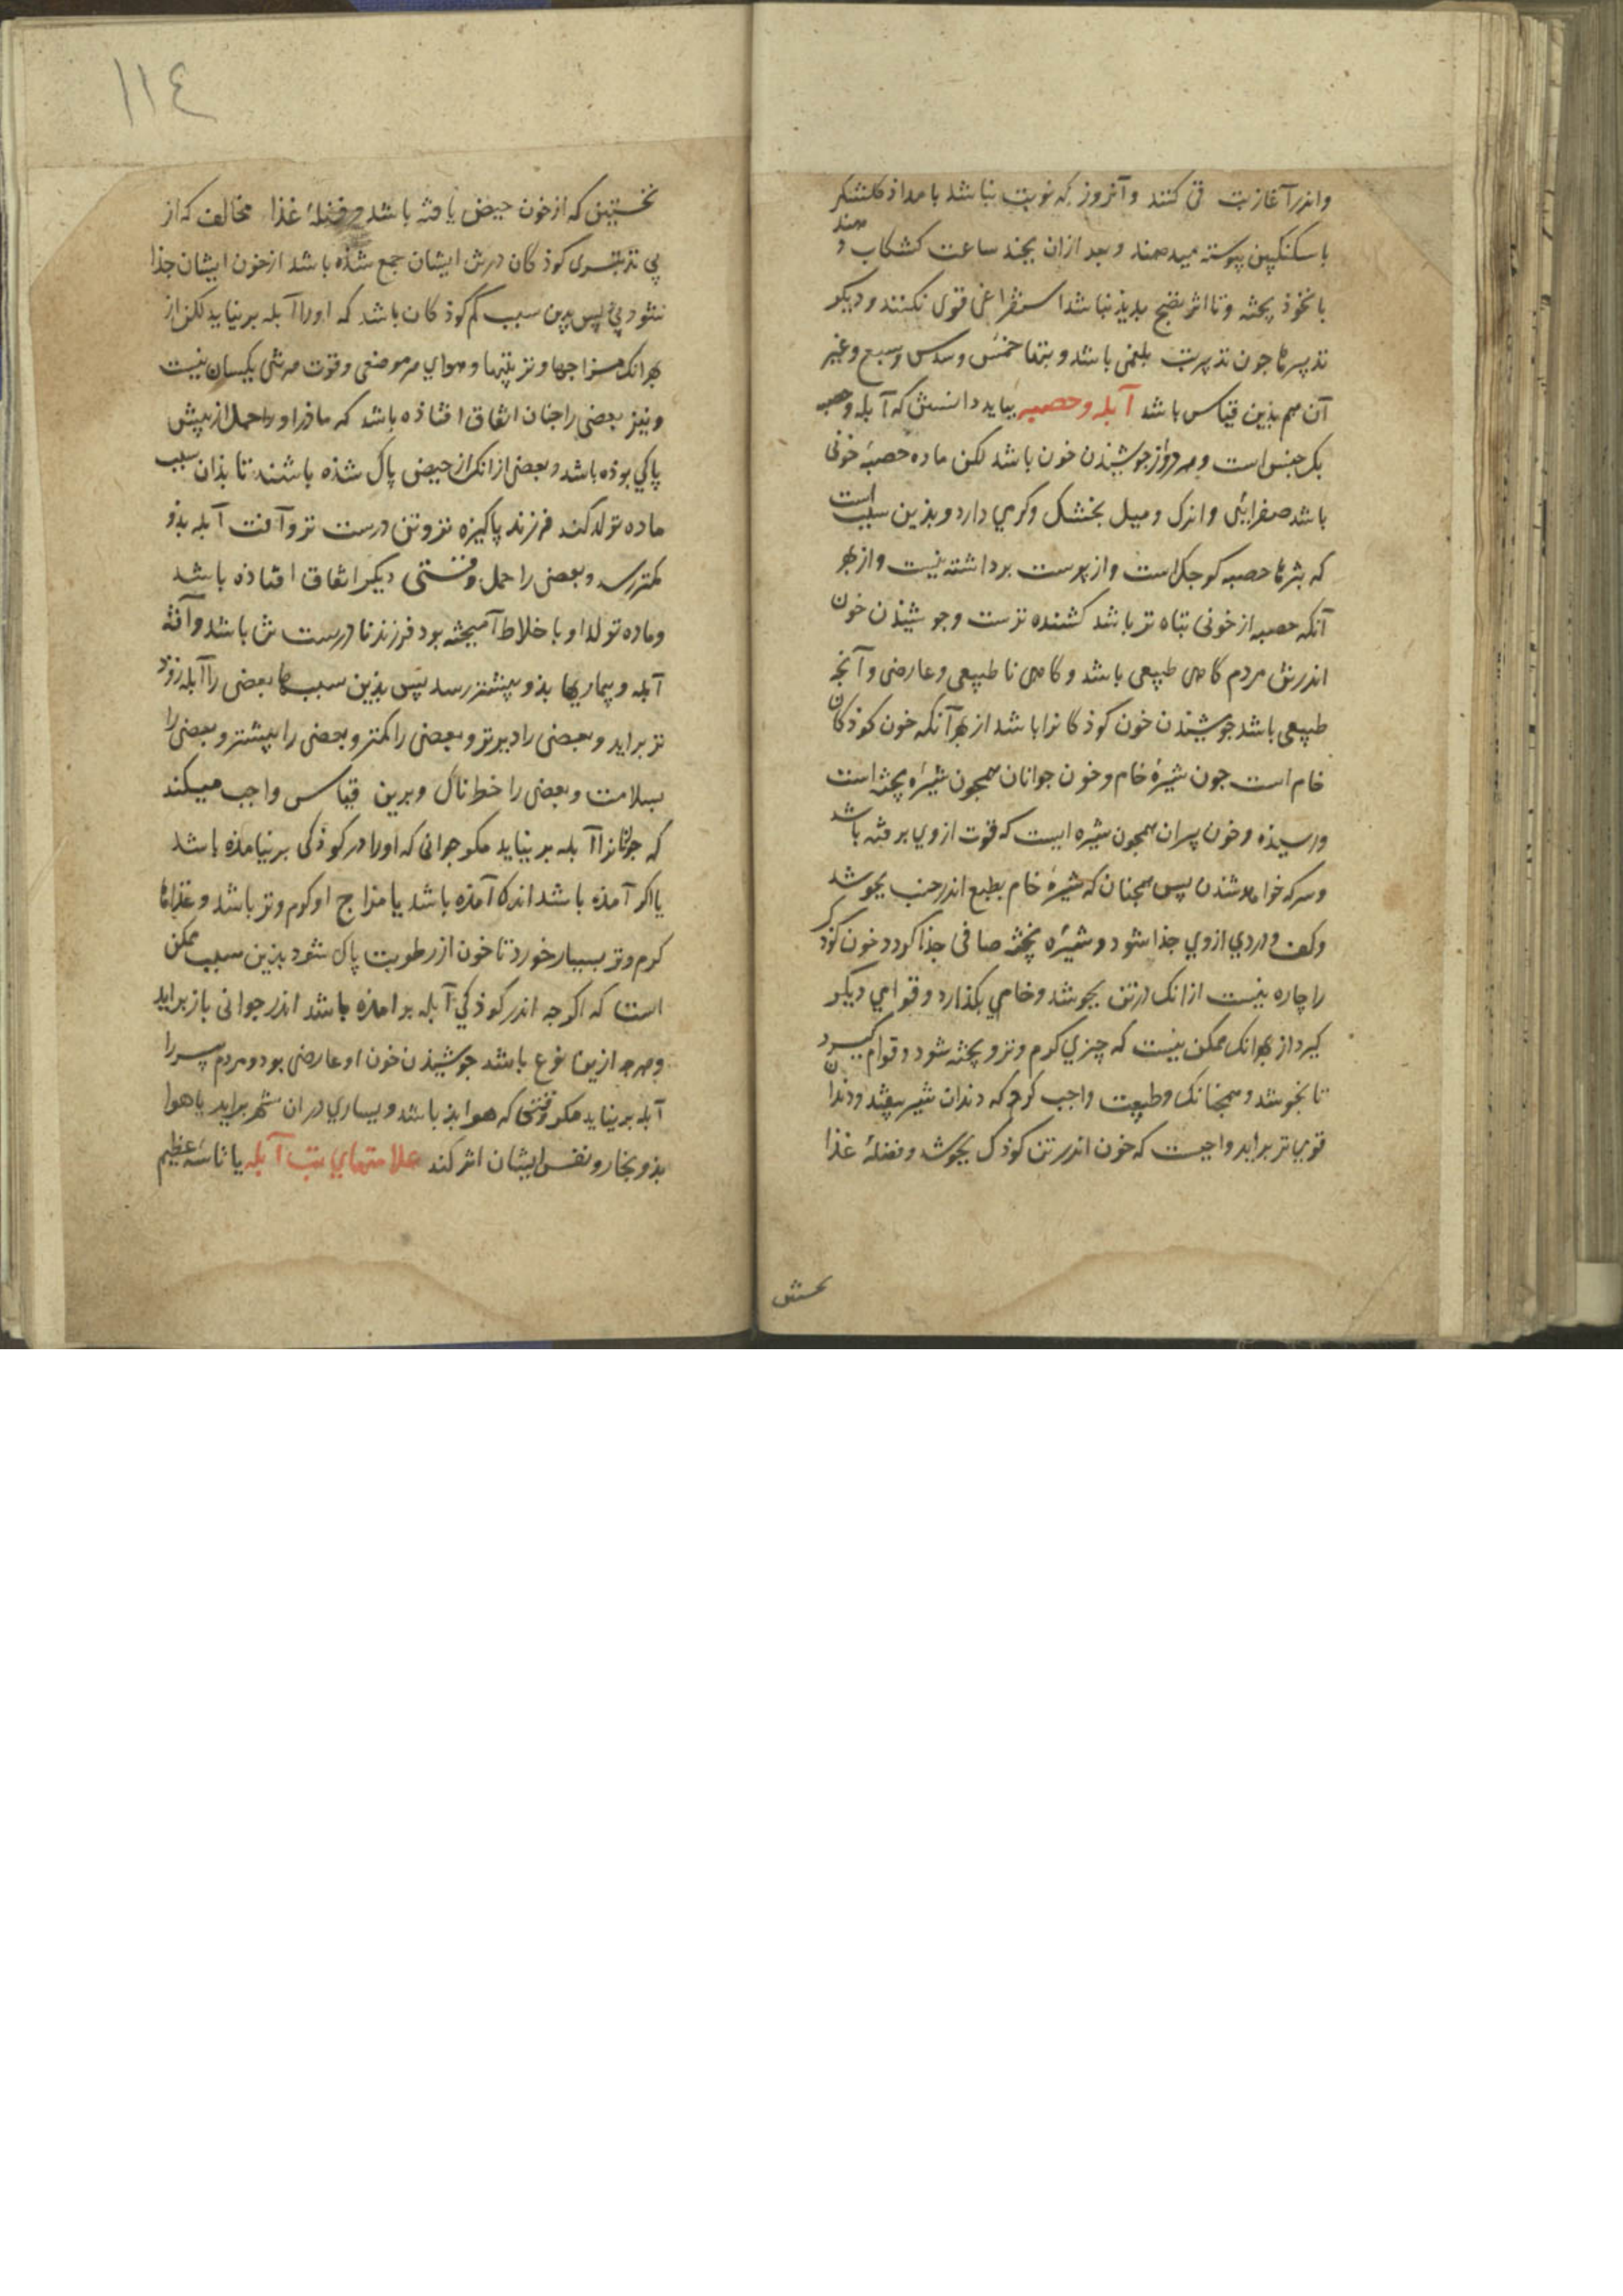 واندر آغاز تب قی کنند و آنروز که نوبت نباشد بامداذ کلشکر
با سکنکبین پیوسته میدهند و بعد ازان بچند ساعت کشکاب دهند
با نخوذ پخته و تا اثر نضج بدید نباشد استفراغی قوی نکنند و دیکر
تدبیرها جون تدبیر تب بلغمی باشد و تبها خمس و سدس و سبع و غیر
آن هم بذین قیاس باشد آبله و حصبه بباید دانستن که آبله و حصبه
یک جنس است و هر دو از جوشیذن خون باشد لکن ماده حصبه خونی
باشد صفرایی و اندک و میل بخشکی و کرمی دارد و بذین سبب است
که بثرها حصبه کوجک است و از پوست برداشته نیست و از بهر
آنکه حصبه از خونی تباه تر باشد کشنده ترست و جوشیذن خون
اندر تن مردم کاهی طبیعی باشد و کاهی نا طبیعی و عارضی و آنجه
طبیعی باشد جوشیذن خون کوذکانرا باشد از بهر آنکه خون کوذکان
خام است جون شیرهٔ خام و خون جوانان همجون شیرهٔ پخته است
و رسیذه و خون پیران همجون شیره ایست که قوت ازوی برفته باشد
و سرکه خواهد شذن پس همجنان که شیرهٔ خام بطبع اندر خنب بجوشد
و کف و دردی ازوی جذا شود و شیرهٔ پخته صافی جذا کردد خون کوذک
را چاره نیست ازانک در تن بجوشد و خامی بکذارد و قوامی دیکر
کیرد از بهر انک ممکن نیست که چیزی کرم و تر و پخته شود و قوام کیرد
تا بجوشد و همجنانک طبیعت واجب کرد که دندان شیر بیفتد و دندان
قوی تر براید واجبست که خون اندر تن کوذک بجوشد و فضلهٔ غذا
نخستین که از خون حیض یافته باشد و فضلهٔ غذا مخالف که از
بی تدبیری کوذکان در تن ایشان جمع شذه باشد از خون ایشان جذا
شود پس بدین سبب کم کوذکان باشد که او را آبله بر نیاید لکن از
بهر انک مزاجها و تربیتها و هوای هر موضعی و قوت هر تنی یکسان نیست
و نیز بعضی را جنان اتفاق افتاذه باشد که ماذر او را حمل از پیش
پاکی بوذه باشد و بعضی از انک از حیض پاک شذه باشند تا بذان سبب
ماده تولد کند فرزند پاکیزه تر و تن درست تر و آفت آبله بذو
کمتر رسد و بعضی را حمل وقتی دیکر اتفاق افتاذه باشد
و ماده تولد او با خلاط آمیخته بود فرزند نا درست تن باشد و آفت
آبله و بیماریها بذو بیشتر رسد پس بذین سببها بعضی را آبله زوذ
تر براید و بعضی را دیرتر و بعضی را کمتر و بعضی را بیشتر و بعضی را
بسلامت و بعضی را خطرناک و برین قیاس واجب میکند
که جوانانرا آبله بر نیاید مکر جوانی که او را در کوذکی بر نیامذه باشد
یا اکر آمذه باشد اندک آمذه باشد یا مزاج او کرم و تر باشد و غذاها
کرم و تر بسیار خورد تا خون از رطوبت پاک شود بذین سبب ممکن
است که اکرجه اندر کوذکی آبله بر امذه باشد اندر جوانی باز براید
و هرجه ازین نوع باشد جوشیذن خون او عارضی بود و مردم پیر را
آبله بر نیاید مکر وقتی که هوا بذ باشد و بسیاری در ان شهر براید یا هوا
بذ و بخار و نفس ایشان اثر کند علامتهای تب آبله یا تاسهٔ عظیم
نخستین
۱۱٤